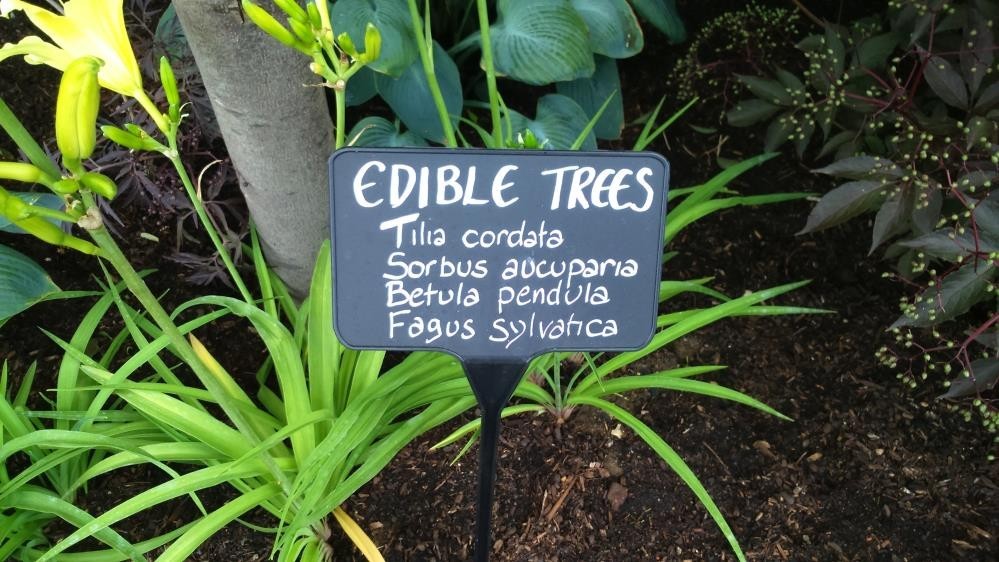 EDIBLE TREES
Tilia cordata
Sorbus aucuparia
Betula pendula
Fagus sylvatica